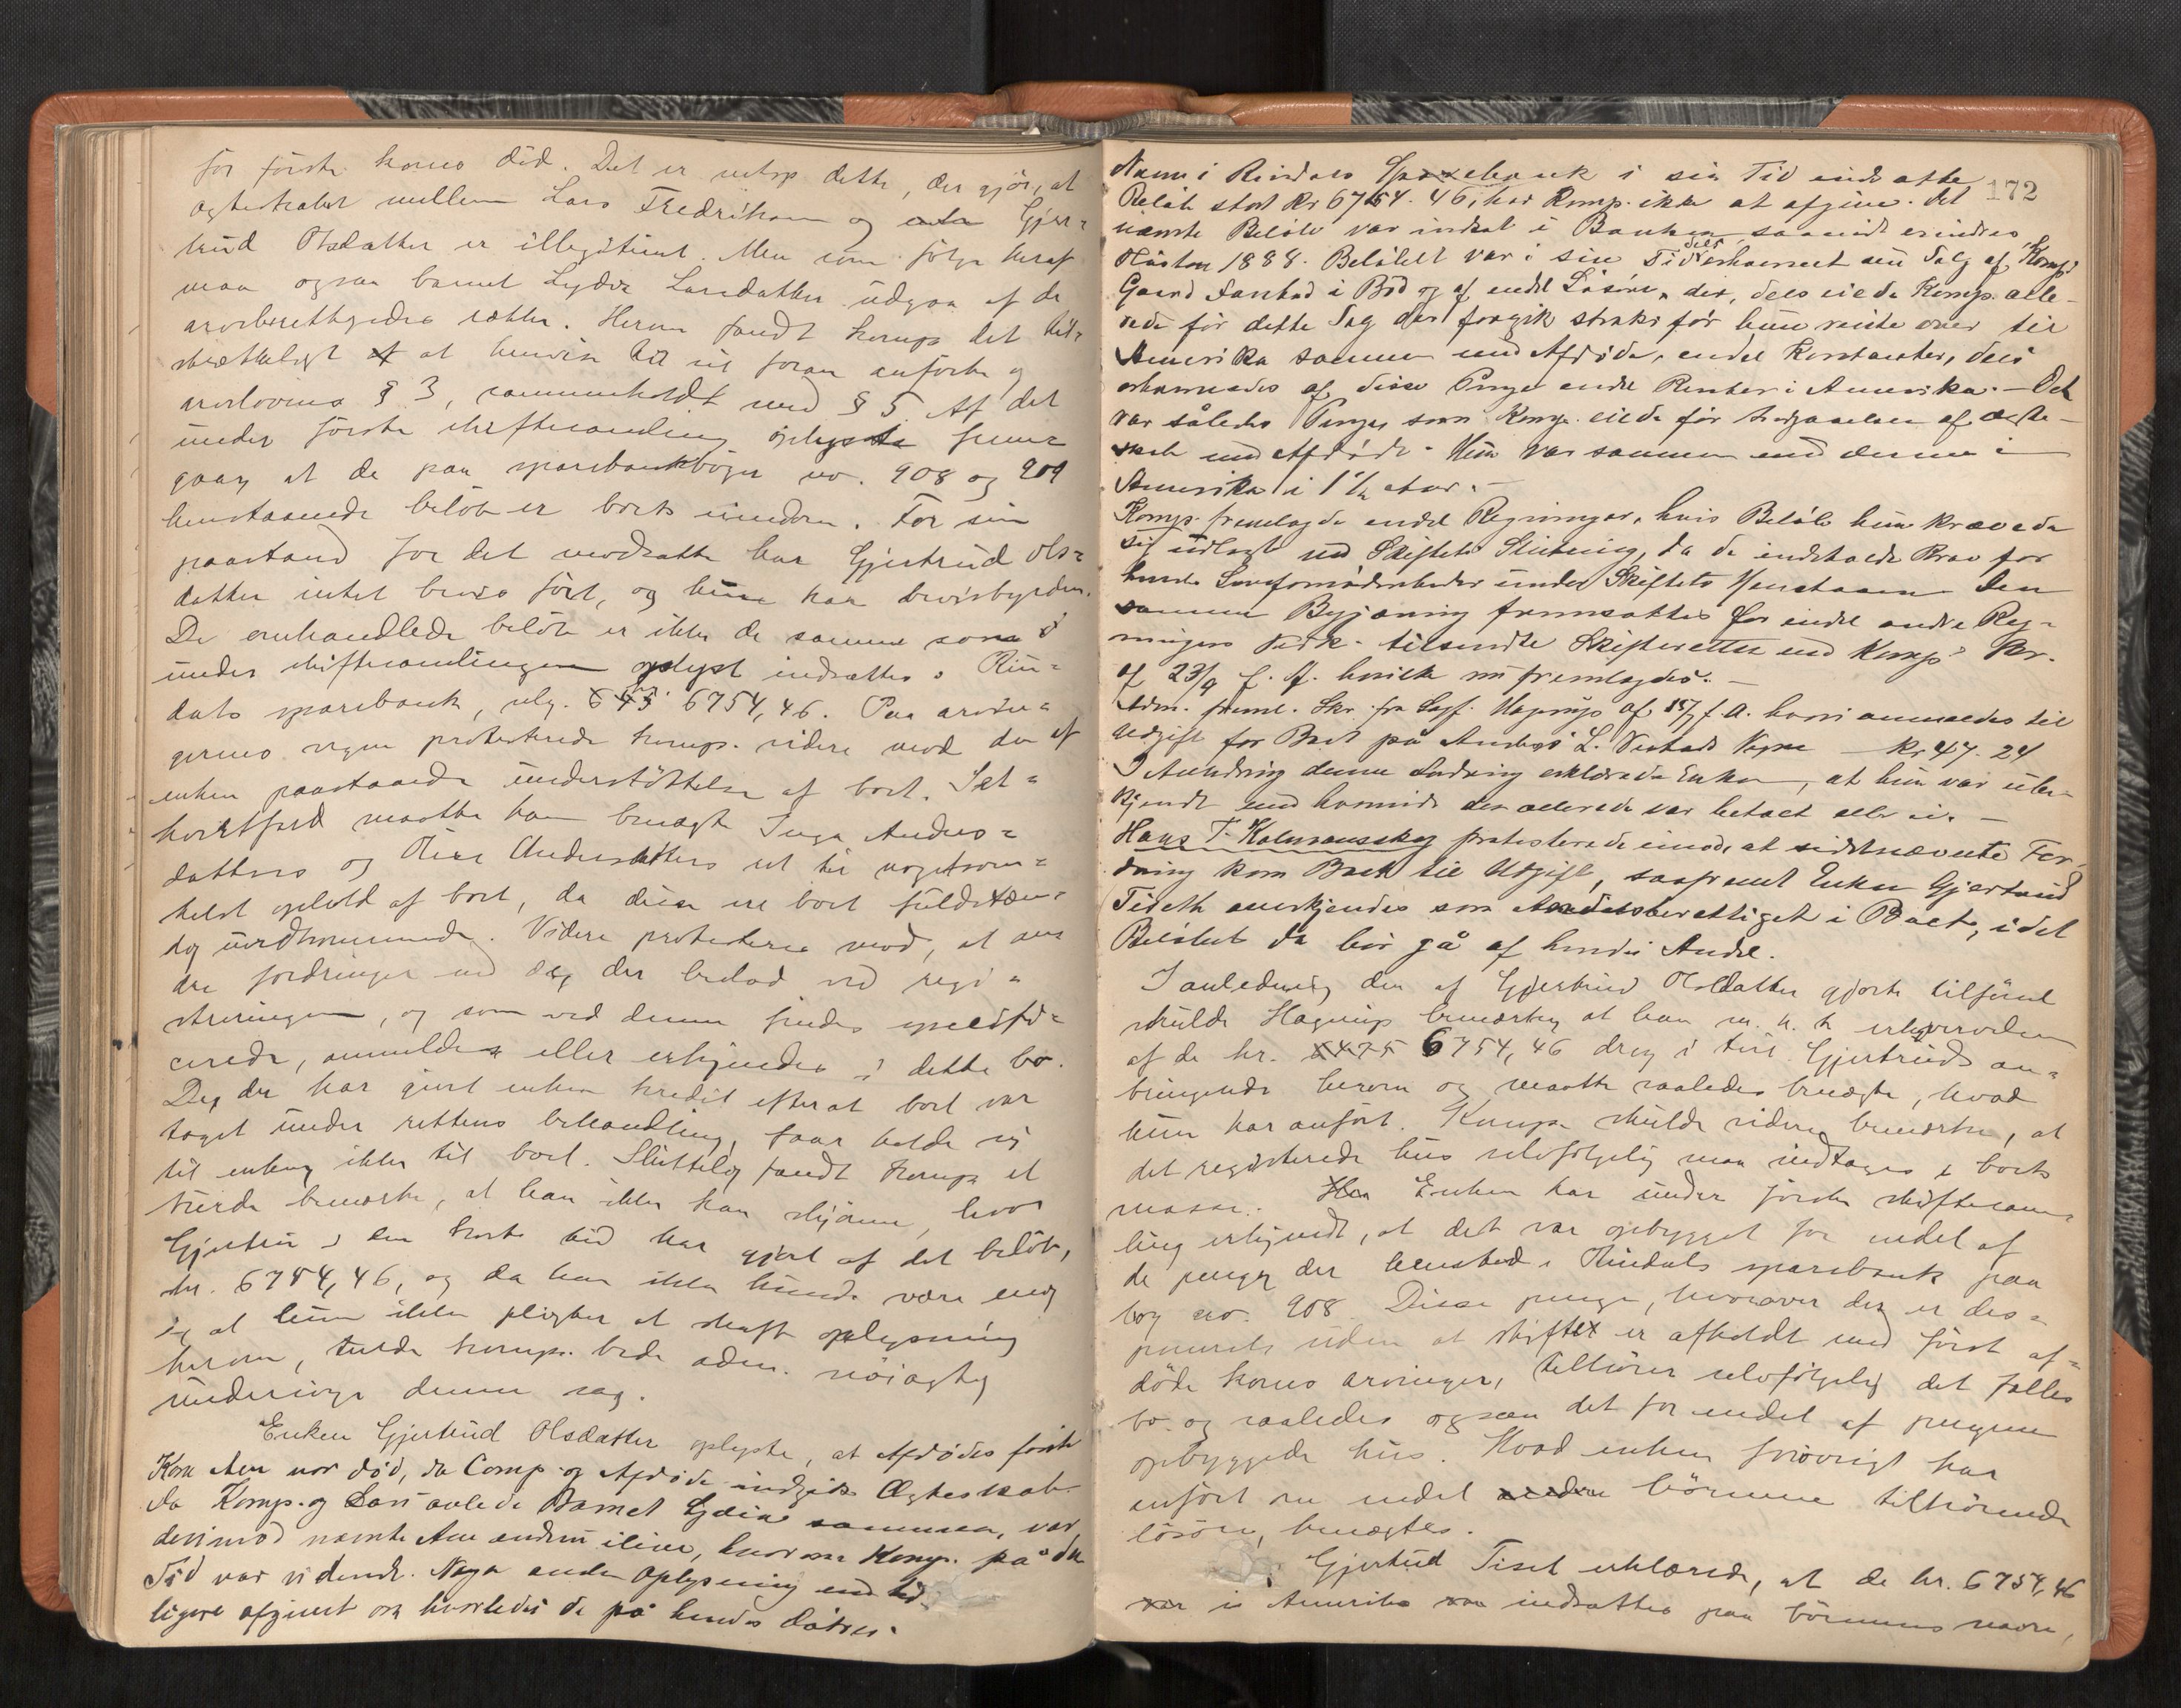 för förste kones död. Det er netop dette, der gjör, at
egteskabet mellem Lars Fredriksen og Gjer=
trud Olsdatter er illegitimt. Men som fölge heraf
maa ogsaa barnet Lydia Larsdatter udgaa af de
arveberettigedes rækker. Herom fandt komp. det til=
strækkeligt at henvise til sit foran anförte og
arvelovens § 3, sammenholdt med § 5. Af det
under förste skiftesamling oplyste frem=
gaar, at de paa sparebankböger no. 908 og 909
henstaaende belöb er boets eiendom. For sin
paastand for det modsatte har Gjertrud Ols=
datter intet bevis fört, og hun har bevisbyrden.
De omhandlede belöb er ikke de samme som
under skiftesamlingen oplyst indsattes i Rin=
dals sparebank, nlg. 6754,46. Paa arvin=
gernes vegne protesterede komp. videre mod den af
enken paastaaede understöttelse af boet. Let=
hvertfald maatte han benægte Inga Anders=
datters og Andersdatters ret til nogetsom=
helst ophold af boet, da disse er boet fuldstæn=
dig uvedkommende. Videre protesteres mod, at an=
dre fordringer end de, der bestod ved regi=
streringen, og som ved denne findes specifi=
cerede, anmeldes eller erkjendes i dette bo.
De, der har givet enken kredit efterat boet var
taget under rettens behandling, faar holde sig
til enken, ikke til boet. Sluttelig fandt komp. at
burde bemærke, at han ikke kan skjönne, hvor
Gjertrud i den korte tid har gjort af det belöb,
kr. 6754,46, og da han ikke kunde være enig
i, at hun ikke pligter at skaffe oplysning
herom, turde komp. bede adm. nöiagtig
undersöge denne sag.
Enken Gjertrud Olsdatter oplyste, at Afdödes förste
Kone Ane var död, da Comp. og Afdöde indgik Ægteskab.
da Komp. og Lars avlede Barnet Lydia sammen, var
derimod nævnte Ane endnu ilive, hvorom Komp. på den
Tid var vidende. Nogen anden Oplysning end tid
ligere afgivet om hvorledes de på hendes Dötres
172
Navn i Rindals Sparebank i sin Tid indsatte
Belöb stort Kr 6754.46, har Komp. ikke at afgive. Det
nævnte Belöb var indsat i Banken, saavidt erindres
Hösten 1888. Belöbet var i sin Tid dels erhvervet ved Salg af Komp's
Gaard i Böd og af endel Lösöre, der, dels eiede Komp. alle-
rede för dette Salg der foregik straks för hun reiste over til
Amerika sammen med Afdöde, endel Kontanter, dels
erhvervedes af disse Penge endel Renter i Amerika. - Det
var således Penge, som Komp. eiede för Indgaaelsen af ægte-
skab med Afdöde. Hun var sammen med denne i
Amerika i 1½ aar. -
Komp. fremlagde endel Regninger, hvis Belöb hun krævede
sig udlagt ved Skiftets Slutning, da de indeholdt Krav for
hendes Livsfornödenheder under Skiftets Henstaaen. Den
samme Begjæring fremsattes for endel andre Reg-
ninger Vedk. tilsendte Skifteretten med Komp's Skr.
af 23/9 f. A. hvilke nu fremlagdes. -
Adm. freml. Skr. fra Sagf. Hagerup af 15/7 f. A. hvori anmeldes til
Udgift for Boet på Anders L. Vegne - Kr 47.24
I Anledning denne Fordring erklærede Enken, at hun var ube-
kjendt med hvorvidt den allerede var betalt eller ei. -
Hans T. protesterede imod, at sidstnævnte For-
dring kom Boet til Udgift, saafremt Enken Gjertrud
Tiseth anerkjendes som Andelsberettiget i Boet, idet
Belöbet da bör gå af hendes Andel.
I anledning den af Gjertrud Olsdatter gjorte tilförsel
skulde Hagerup bemærke, at han m. h. t. erhvervelsen
af de kr. 6754,46 drog i tvil Gjertruds an=
bringende herom og maatte saaledes benægte, hvad
hun har anfört. Komp. skulde videre bemærke, at
det registrerede hus selvfölgelig maa indtages i boets
masse. Enken har under förste skiftesam=
ling erkjendt, at det var opbygget for endel af
de penge, der henstod i Rindals sparebank paa
bog no. 908. Disse penge, hvorover der er dis=
poneret, uden at skifte er afholdt med först af=
döde kones arvinger, tilhörer selvfölgelig det fælles
bo og saaledes ogsaa det for endel af pengene
opbyggede hus. Hvad enken forövrigt har
anfört om endel börnene tilhörende
lösöre, benægtes.
Gjertrud Tiset erklærede, at de kr. 6754,46
i Amerika indsattes paa börnenes navn,